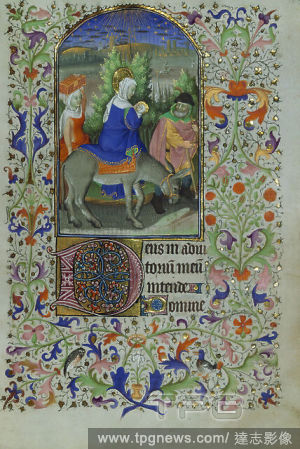 Deus in adiu
toriu͞ meu͞
intende
Domine
TPG
www.tpgnews.com/ 達志影像